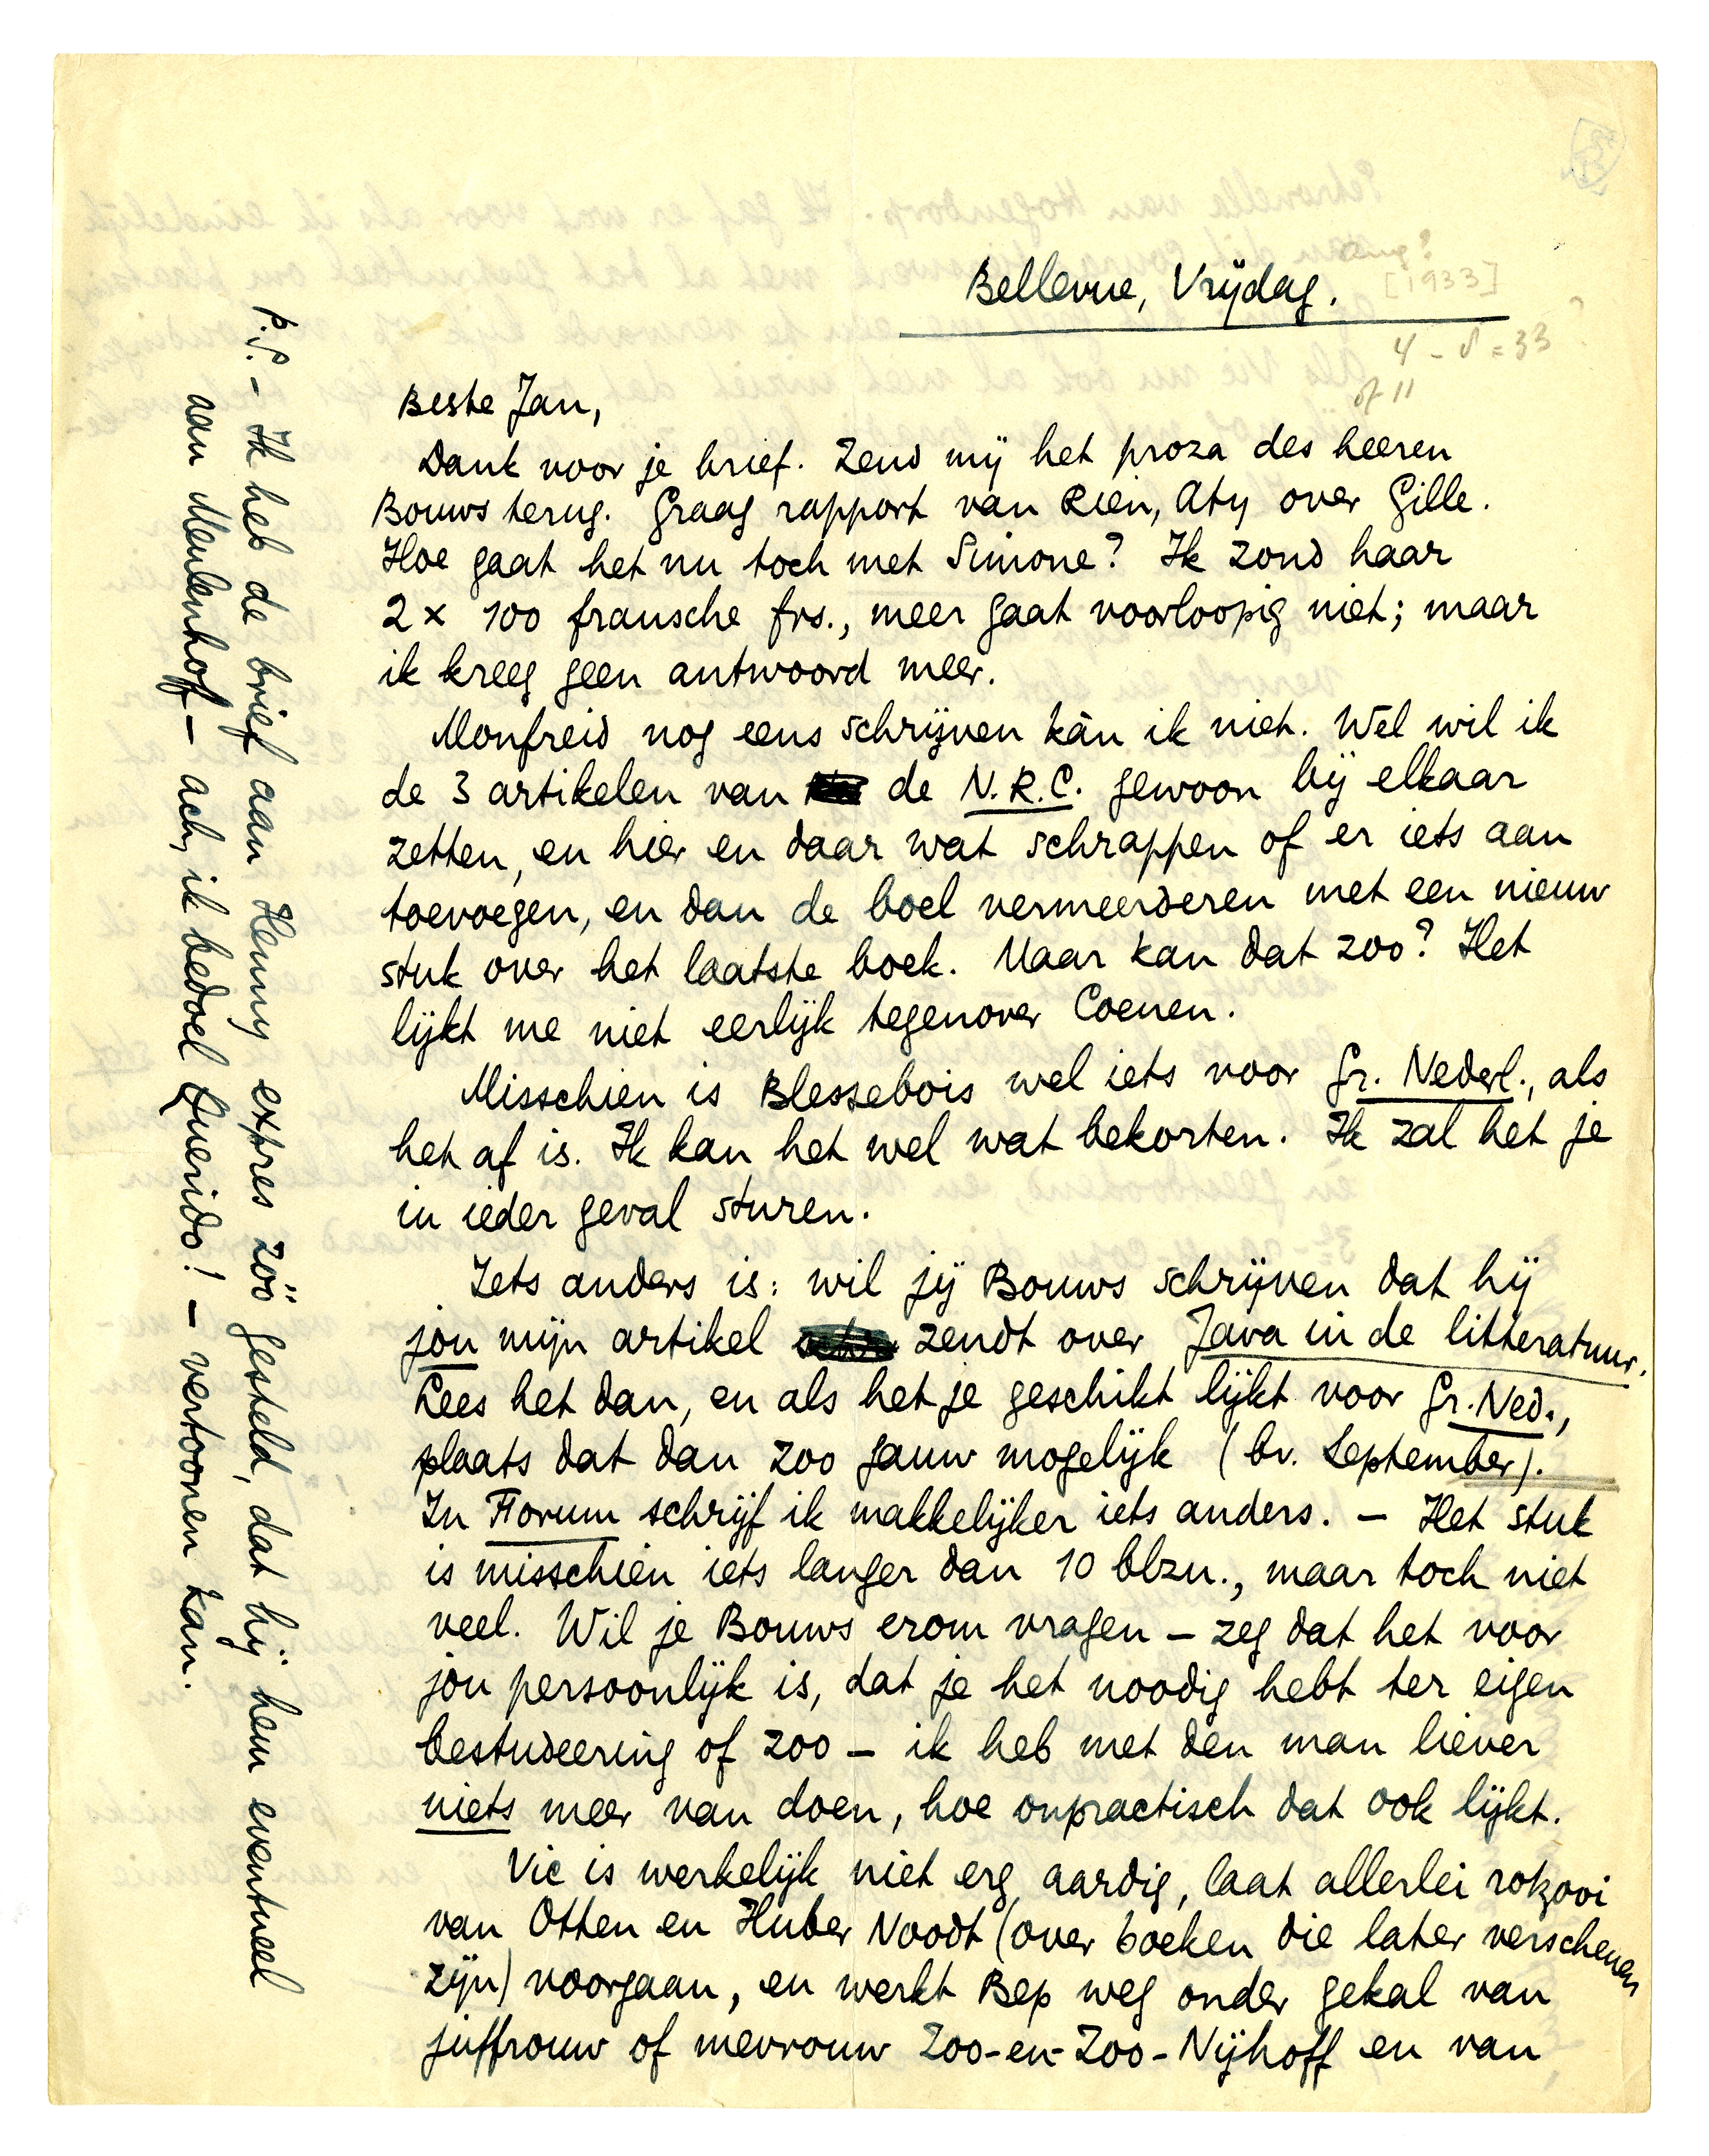 Bellevue, Vrijdag.
Aug?
[1933]
4 - 8 = 33 ?
of 11
Beste Jan,
Dank voor je brief. Zend mij het proza des heeren
Bouws terug. Graag rapport van Rien, Aty over Gille.
Hoe gaat het nu toch met Simone? Ik zond haar
2 x 100 fransche frs., meer gaat voorloopig niet; maar
ik kreeg geen antwoord meer.
Monfreid nog eens schrijven kàn ik niet. Wèl wil ik
de 3 artikelen van de N.R.C. gewoon bij elkaar
zetten, en hier en daar wat schrappen of er iets aan
toevoegen, en dan de boel vermeerderen met een nieuw
stuk over het laatste boek. Maar kan dat zoo? Het
lijkt me niet eerlijk tegenover Coenen.
Misschien is Blessebois wel iets voor Gr. Nederl., als
het af is. Ik kan het wel wat bekorten. Ik zal het je
in ieder geval sturen.
Iets anders is: wil jij Bouws schrijven dat hij
jou mijn artikel zendt over Java in de litteratuur.
Lees het dan, en als het je geschikt lijkt voor Gr. Ned.,
plaats dat dan zoo gauw mogelijk (bv. September).
In Forum schrijf ik makkelijker iets anders. – Het stuk
is misschien iets langer dan 10 blzn., maar toch niet
veel. Wil je Bouws erom vragen – zeg dat het voor
jou persoonlijk is, dat je het noodig hebt ter eigen
bestudeering of zoo – ik heb met den man liever
niets meer van doen, hoe onpractisch dat ook lijkt.
Vic is werkelijk niet erg aardig, laat allerlei rotzooi
van Otten en Huber Noodt (over boeken die later verschenen
zijn) voorgaan, en werkt Bep weg onder gekal van
juffrouw of mevrouw Zoo-en-Zoo-Nijhoff en van
P.S. – Ik heb de brief aan Henny expres zóó gesteld, dat hij hem eventueel
aan Meulenhof – ach, ik bedoel Querido! – vertoonen kan.